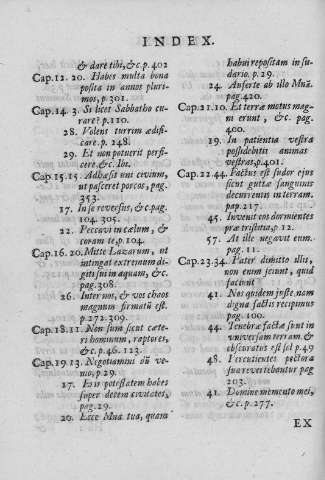 INDEX.
& dare tibi, &c. p. 402
Cap. 12. 20. Habes multa bona
posita in annos pluri-
mos, p. 301.
Cap. 14. 3. Si licet Sabbatho cu-
rare? p. 110.
28. Volens turrim ædifi-
care p. 248.
29. Et non potuerit perfi-
cere, &c. Ibi.
Cap. 15. 15. Adhæsit uni civium,
ut pasceret porcos, pag.
353.
17. In se reversus, &c. pag.
104. 305.
22. Peccavi in cælum, &
coram te, p. 104.
Cap. 16. 20. Mitte Lazarum, ut
intingat extremum di-
giti sui in aquam, &c.
pag. 308.
26. Inter nos, & vos chaos
magnum firmatũ est.
p. 272. 309.
Cap. 18. 11. Non sum sicut cæte-
ri hominum, raptores,
&c. p. 46. 123.
Cap. 19. 13. Negotiamini dũ ve-
nio, p. 29.
17. Eris potestatem habes
super decem civitates,
pag. 29.
20. Ecce Mna tua, quam
habui repositam in su-
dario. p. 29.
24. Auferte ab illo Mnã.
pag. 420.
Cap. 21. 10. Et terræ motus mag-
ni erunt, &c. pag.
400.
19. In patientia vestra
possidebitis animas
vestras, p. 401.
Cap. 22. 44. Factus est sudor ejus
sicut guttæ sanguinis
decurrentis in terram.
pag. 217.
45. Invenit eos dormientes
præ tristitia, p 12.
57. At ille negavit eum.
pag. 11.
Cap. 23. 34. Pater dimitte illis,
non enim sciunt, quid
faciunt
41. Nos quidem juste nam
digna factis recipimus
pag. 100.
44. Tenebræ factæ sunt in
universam terram. &
obscuratus est sol p. 49
48. Percutientes pectora
sua revertebantur pag
203.
41. Domine memento mei,
&c. p. 277.
EX